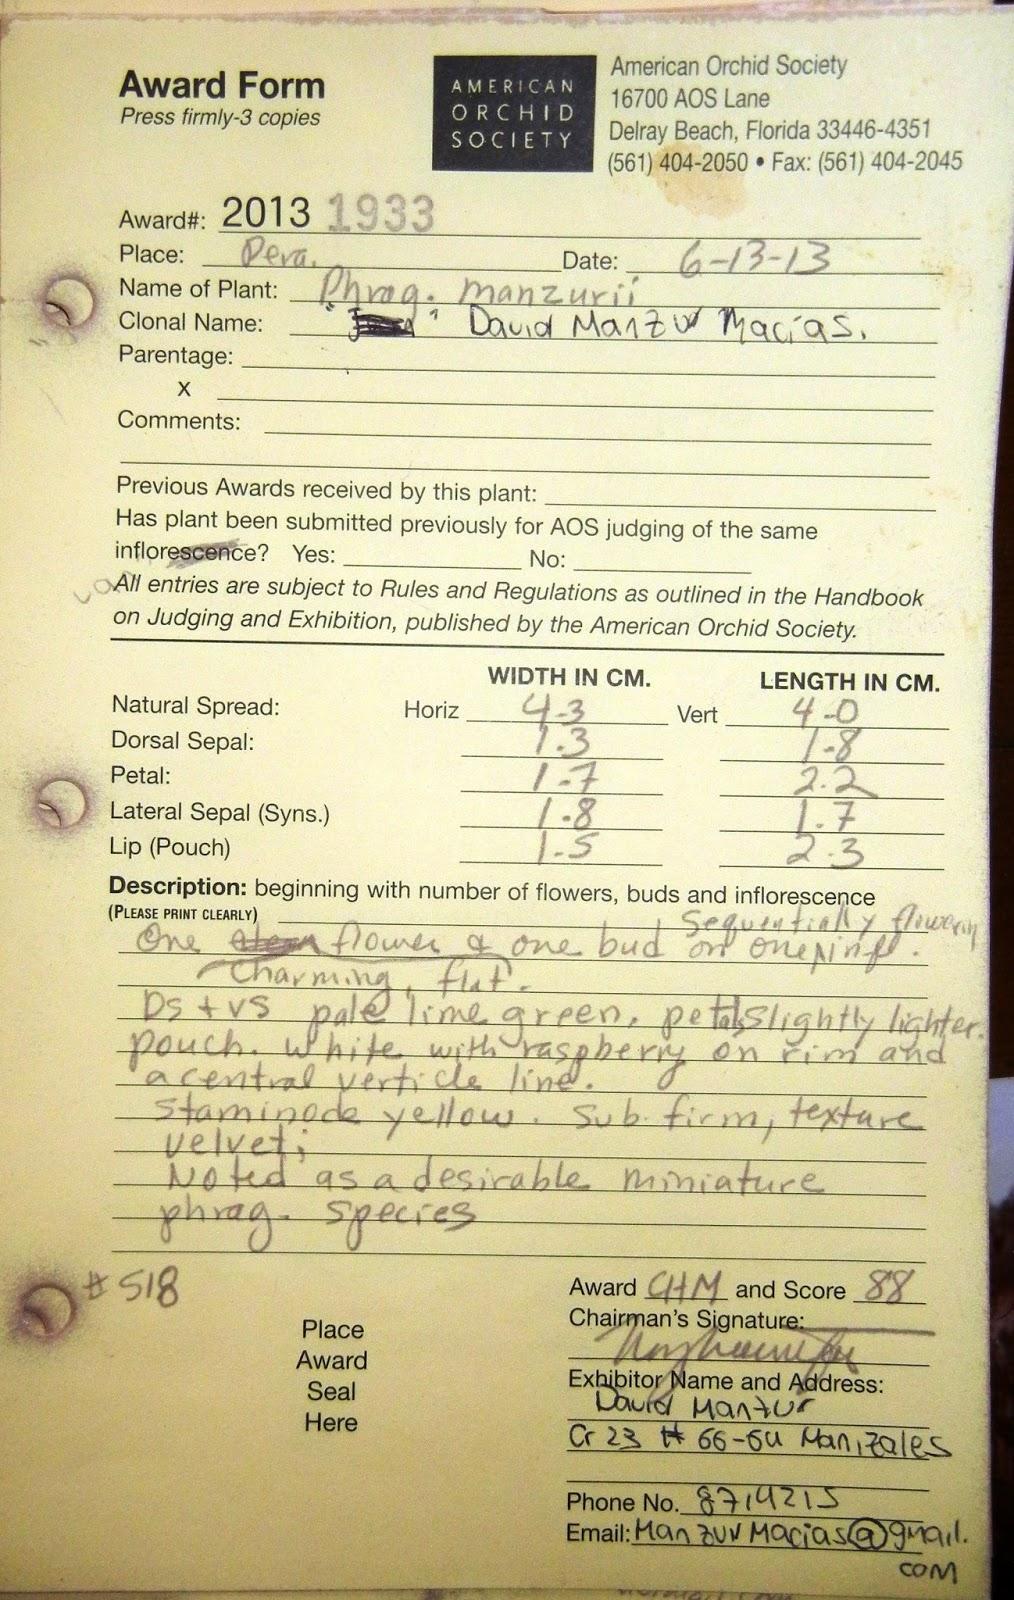 Award Form
Press firmly-3 copies
AMERICAN
ORCHID
SOCIETY
American Orchid Society
16700 AOS Lane
Delray Beach, Florida 33446-4351
(561) 404-2050 • Fax: (561) 404-2045
Award#: 2013 1933
Place: Pera. Date: 6-13-13
Name of Plant: Phrag. manzurii
Clonal Name: " " David Manzur Macias.
Parentage:
X
Comments:
Previous Awards received by this plant:
Has plant been submitted previously for AOS judging of the same
inflorescence? Yes: No:
All entries are subject to Rules and Regulations as outlined in the Handbook
on Judging and Exhibition, published by the American Orchid Society.
WIDTH IN CM. LENGTH IN CM.
Natural Spread: Horiz 4-3 Vert 4-0
Dorsal Sepal: 1.3 1-8
Petal: 1-7 2.2
Lateral Sepal (Syns.) 1.8 1.7
Lip (Pouch) 1.5 2.3
Description: beginning with number of flowers, buds and inflorescence
(PLEASE PRINT CLEARLY) Sequentially flowering
One flower & one bud on one inf.
Charming, flat.
Ds + vs pale lime green, petals slightly lighter.
pouch. White with raspberry on rim and
a central verticle line.
Staminode yellow. Sub. firm, texture
velvet;
Noted as a desirable miniature
phrag. species
# 518
Award CHM and Score 88
Chairman's Signature:
Place
Award
Seal
Here
Exhibitor Name and Address:
David Manzur
Cr 23 # 66-64 Manizales
Phone No. 8714215
Email: ManzurMacias@gmail.
com